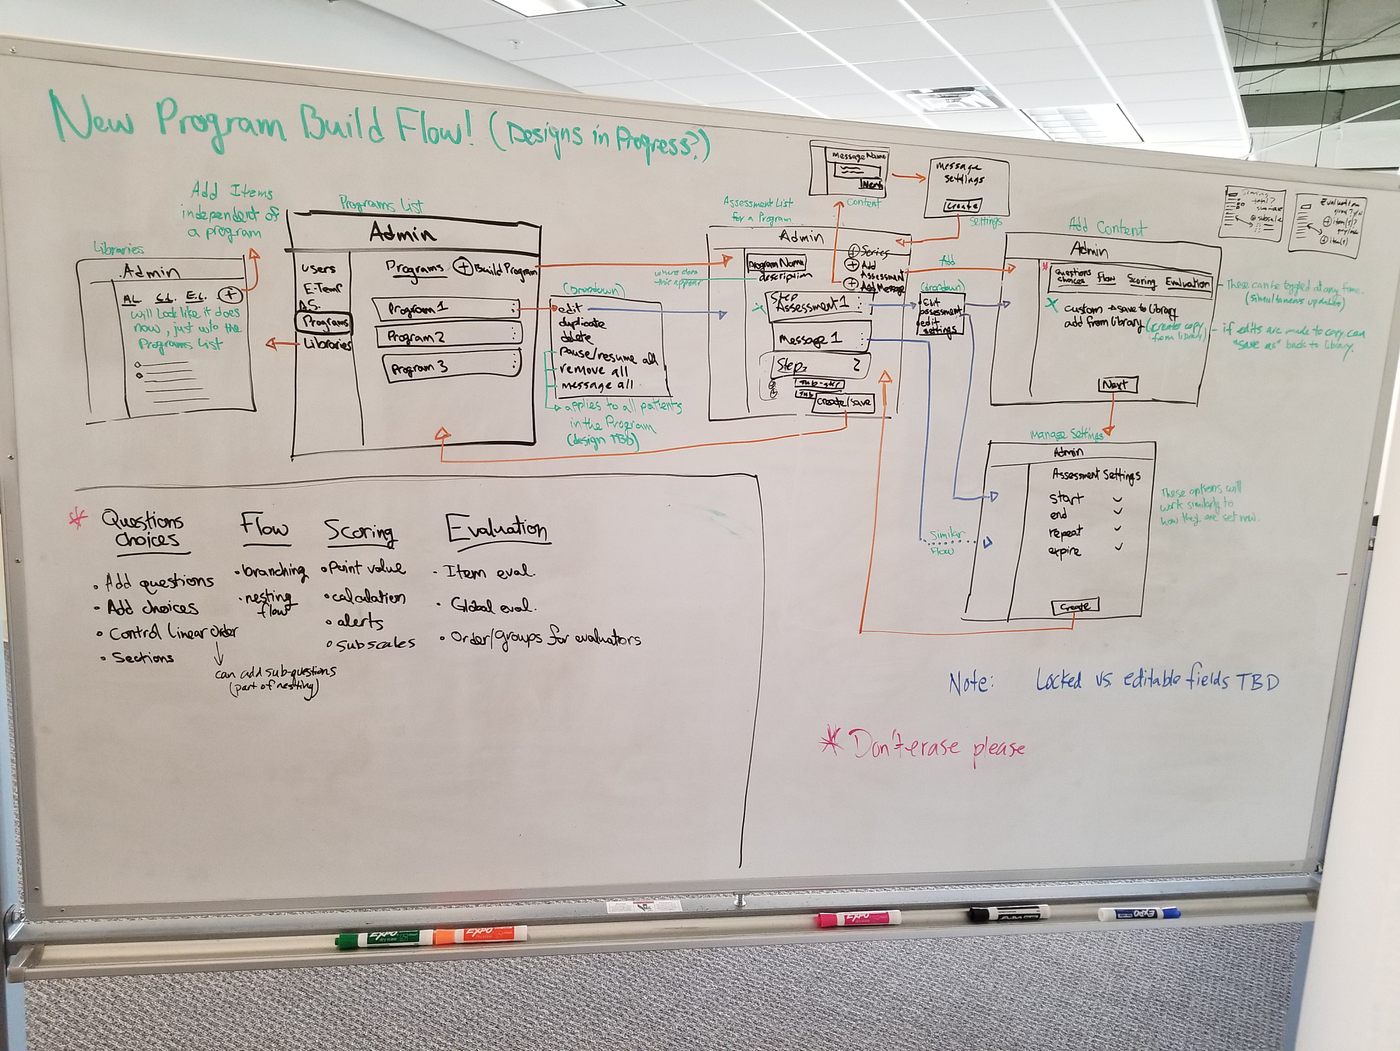 New Program Build Flow! (Designs in Progress?)
Add Items
independent of
a program
Libraries
Admin
A.L. C.L. E.L. +
will look like it does
now, just w/o the
Programs list
Programs List
Admin
users
E-Temp
A.S.
Programs
Libraries
Programs + Build Program
Program 1
Program 2
Program 3
(Dropdown)
edit
duplicate
delete
pause/resume all
remove all
message all
applies to all patients
in the Program
(design TBD)
Assessment List
for a Program
Admin
Program Name
description
where does
this appear
+ Series
+ Add
Assessment
+ Add Message
Step
Assessment 1
Message 1
Step 2
create/save
Message Name
Next
content
message
settings
create
settings
Add
(dropdown)
Edit
assessment
edit
settings
Add Content
Admin
* Questions
choices Flow Scoring Evaluation
custom → save to library
add from library (creates copy
from library)
Next
These can be toggled at any time.
(simultaneous updates)
- if edits are made to copy, can
"save as" back to library.
Scoring
Evaluation
Manage Settings
Admin
Assessment Settings
start
end
repeat
expire
Create
These options will
work similarly to
how they are set now.
Similar
Flow
* Questions
choices
• Add questions
• Add choices
• Control linear order
• Sections
can add sub-questions
(part of nesting)
Flow
• branching
• nesting
flow
Scoring
• Point value
• calculation
• alerts
• Subscales
Evaluation
• Item eval.
• Global eval.
• Order/groups for evaluators
Note: Locked vs editable fields TBD
* Don't erase please
EXPO
EXPO
EXPO
EXPO